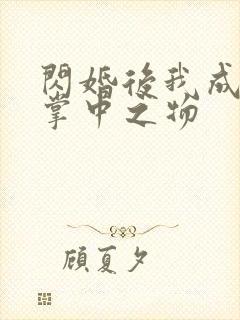 閃婚後我成
掌中之物
顧夏夕